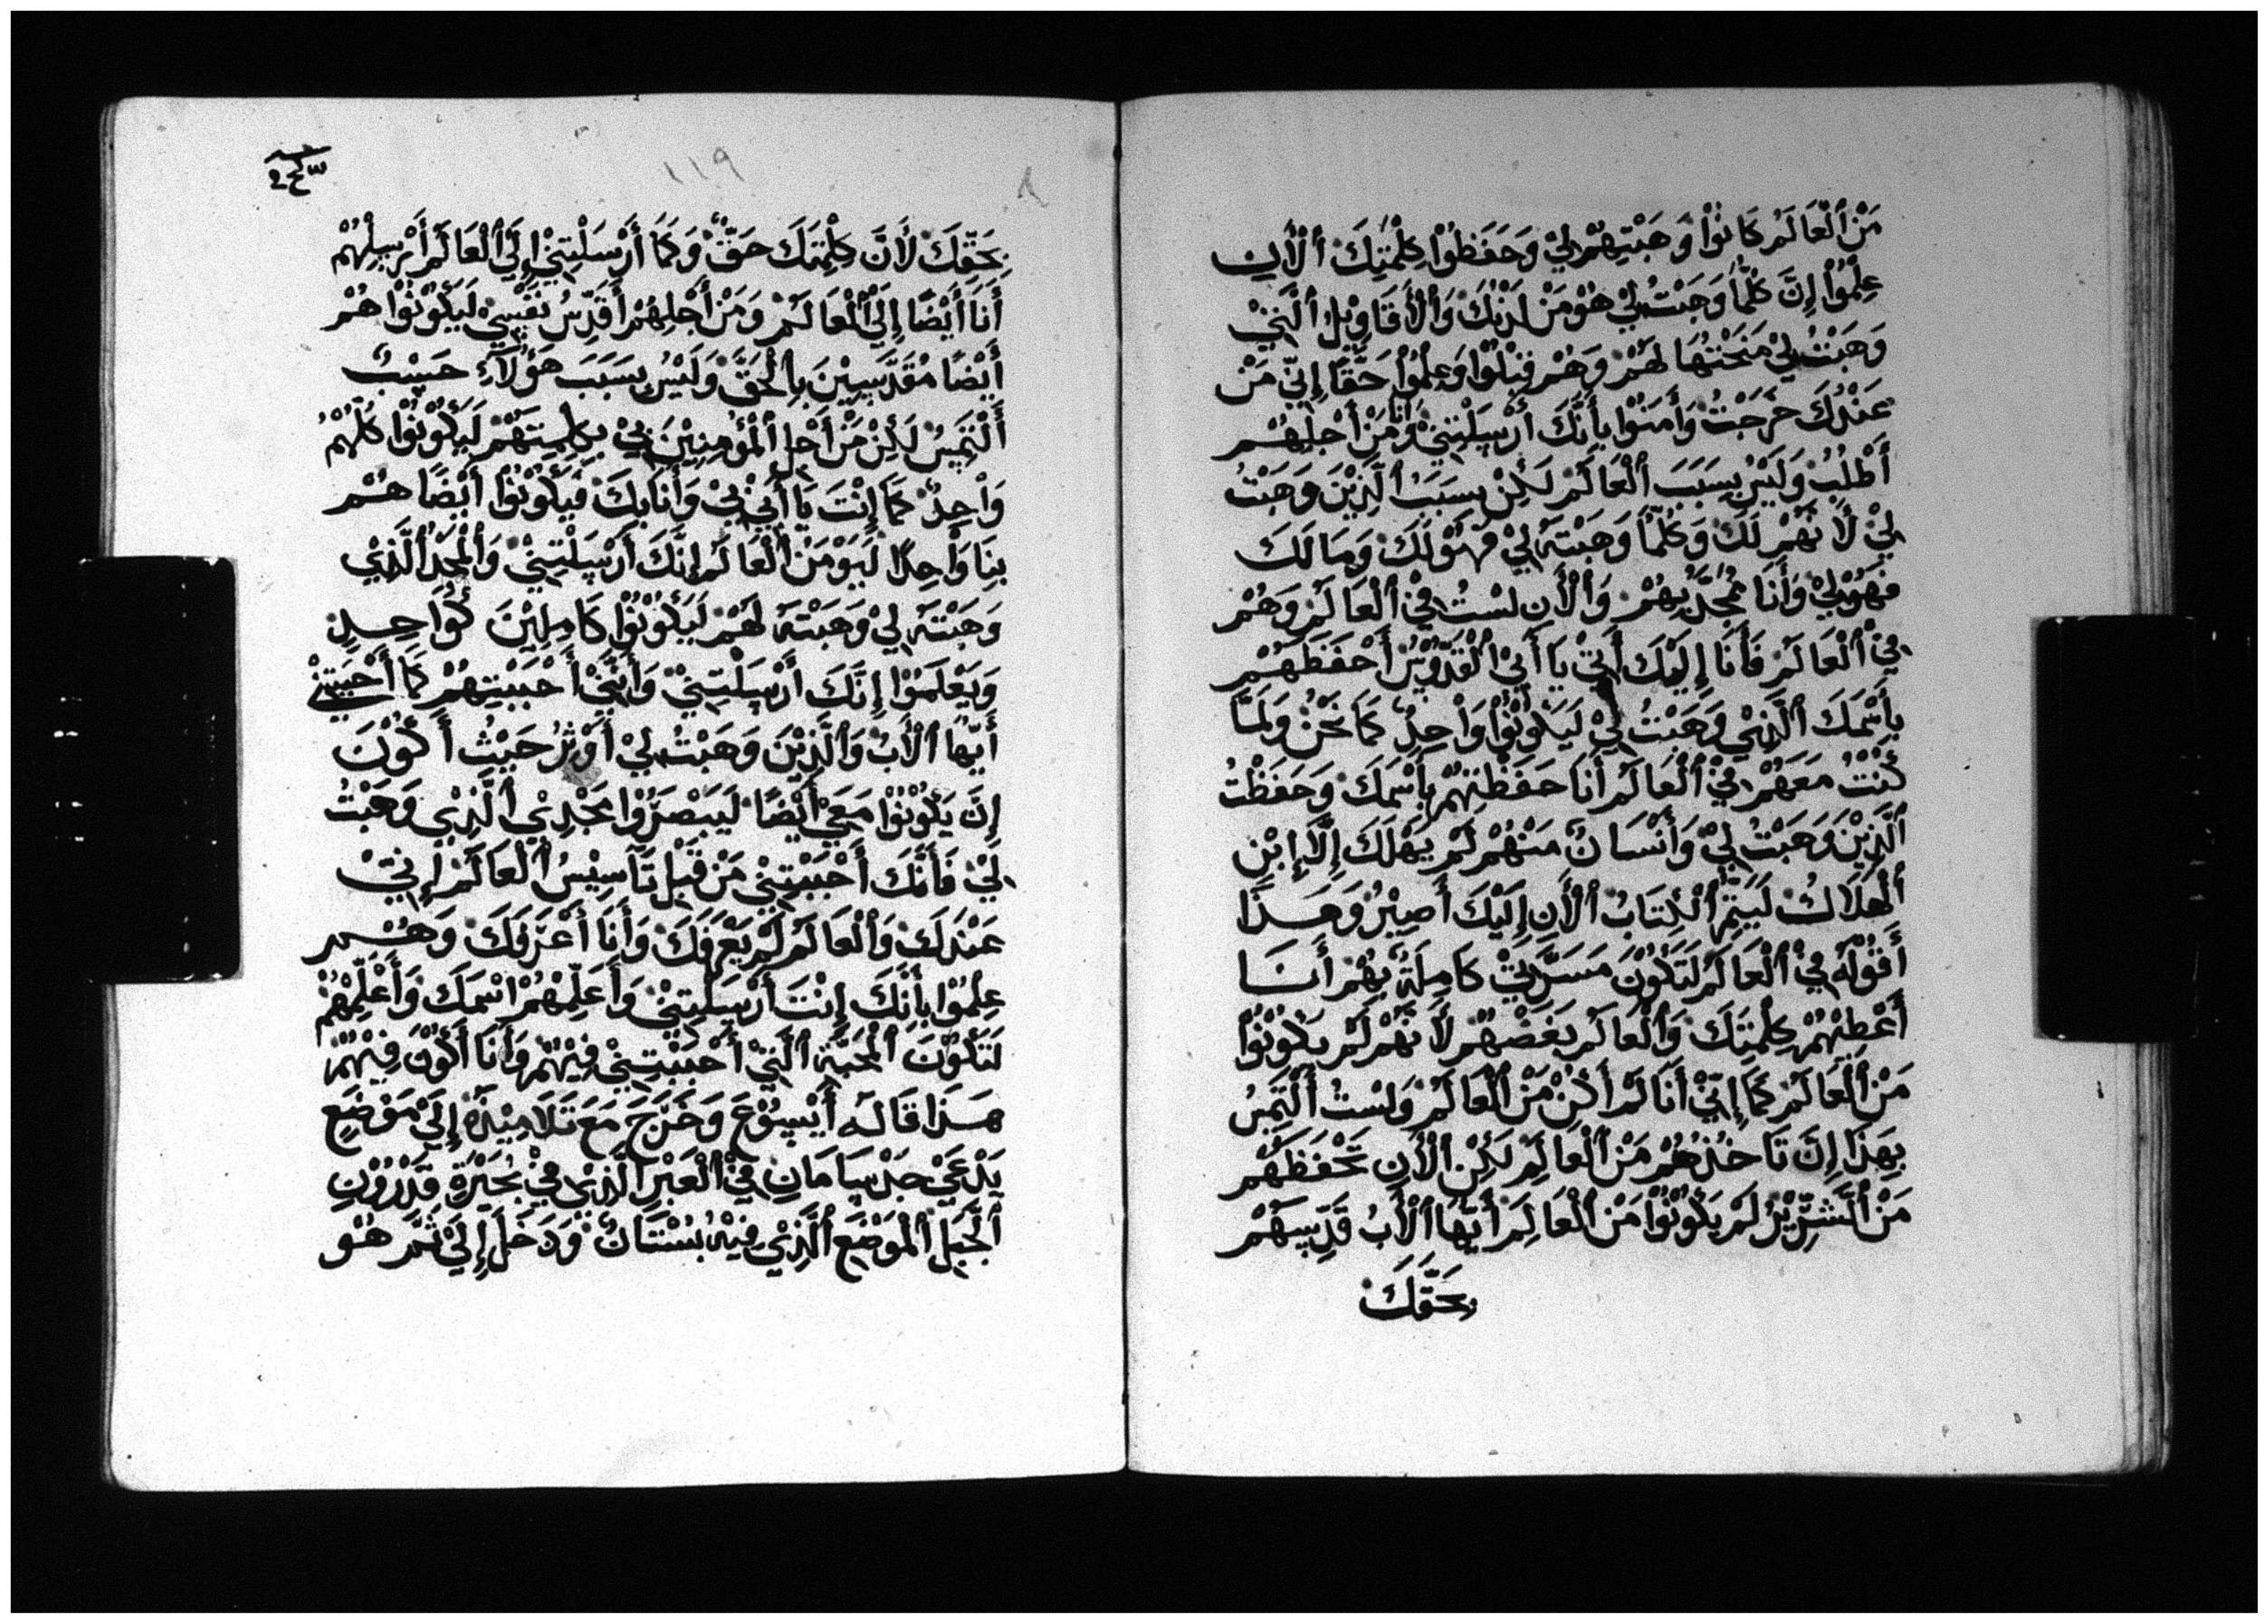 مَنْ ٱلْعَالَمُ كَانُوْا وَهَبْتِهُمْ لِيْ وَحَفَظُوْا كِلْمَتِكَ ٱلْأَنِ
عِلِمُوْا إِنَّ كُلَّمَا وَهَبْتُ لِيْ هُوَ مَنْ لَدُنْكَ وَٱلْأَقَاوِيْلُ ٱلَّتِيْ
وَهَبْتُ لِيْ مَنَحْتُهَا لَهُمْ وَهُمْ قَبِلُوْا وَعِلِمُوْا حَقًّا إِنِّيْ مَنْ
عَنْدُكَ خَرَجْتُ وَأَمَنُوْا بِأَنَّكَ أَرْسَلْتِنِيْ وَأَنَا مَنْ أَجْلِهُمْ
أَطْلُبُ وَلَيْسَ بِسَبَبَ ٱلْعَالَمْ لَكِنْ بِسَبَبُ ٱلَّذِيْنَ وَهَبْتُ
لِيْ لَأَنَهُمْ لَكَ وَكُلَّمَا وَهَبْتَهُ لِيْ فَهُوَ لَكَ وَمَا لَكَ
فَهُوَ لِيْ وَأَنَا مُمَجَّدٌ بِهُمْ وَٱلْأَنِ لَسْتُ فِيْ ٱلْعَالَمْ وَهُمْ
فِيْ ٱلْعَالَمْ فَأَنَا إِلَيْكَ أَتِيْ يَا أَبِيْ ٱلْقَدُّوْسُ أَحْفَظَهُمْ
بِأَسْمَكَ ٱلَّذِيْ وَهَبْتُ لِيْ لَيَكُوْنُوْا وَاْحِدٌ كَمَا نَحْنُ وَلَمَّا
كُنْتُ مَعَهُمْ فِيْ ٱلْعَالَمْ أَنَا حَفَظْتِهُمْ بِأَسْمَكَ وَحَفَظْتُ
ٱلَّذِيْنَ وَهَبْتُ لِيْ وَأَنْسَانٌ مَنْهُمْ لَمْ يَهْلَكَ إِلَّا إِبْنِ
ٱلْهَلَاكُ لَيَتِمُّ ٱلْكِتَابُ ٱلْأَنِ إِلَيْكَ أَصِيْرُ وَهَذَا
أَقُوْلَهُ فِيْ ٱلْعَالَمْ لَتَكُوْنَ مَسَرَّتِيْ كَامِلَةٌ بِهُمْ أَنَا
أَعْطِتْهُمْ كِلْمَتِكَ وَٱلْعَالَمْ بَغَضْهُمْ لَأَنَهُمْ لَمْ يَكُوْنُوْا
مَنْ ٱلْعَالَمْ كَمَا إِنِّيْ أَنَا لَمْ أَكُنْ مَنْ ٱلْعَالَمْ وَلَسْتُ أَلْتَمِسُ
بِهَذَا إِنَّ تَاخُذْهُمْ مَنْ ٱلْعَالَمْ لَكِنْ ٱلْأَنِ تَحْفَظَهُمْ
مَنْ ٱلشِّرِّيْرُ لَمْ يَكُوْنُوْا مَنْ ٱلْعَالِمَ أَيُّهَا ٱلْأَبُ قَدِّسِهُمْ
بِحَقَّكَ
١١٩
بِحَقِّكَ لَأَنَّ كِلْمِتَكَ حَقٌّ وَكَمَا أَرْسَلْتِنِيْ إِلَيْ ٱلْعَالَمْ أَرْسِلِهُمْ
أَنَا أَيْضًا إِلَيْ ٱلْعَالَمْ وَمَنْ أَجْلِهُمْ أُقَدِّسُ نَفْسِيْ لَيَكُوْنُوْا هُمْ
أَيْضًا مُقَدَّسِيْنَ بِٱلْحَقِّ وَلَيْسَ بِسَبَبَ هَؤُلَآءِ حَسْبٌ
أَلْتَمِسُ لَكِنْ مَنْ أَجْلِ ٱلْمُؤْمِنِيْنَ بِيْ بِكِلِمِتَهُمْ لَيَكُوْنُوْا كُلُّهُمْ
وَاْحِدٌ كَمَا إِنْتَ يَا أَبِيْ بِيْ وَأَنَا بِكَ فَيَكُوْنُوْا أَيْضًا هُمْ
بِنَا وَاْحِدًا لَيَوْمَنْ ٱلْعَالَمْ إِنَّكَ أَرْسَلْتِنِيْ وَٱلْمَجْدُ ٱلَّذِيْ
وَهَبْتَهُ لِيْ وَهَبْتَهُ لَهُمْ لَيَكُوْنُوْا كَامِلِيْنَ كَوَاحِدٍ
وَيَعْلَمُوْا إِنَّكَ أَرْسَلْتِنِيْ وَأَنَّنِيْ أَحْبَبْتِهُمْ كَمَا أَحْبَبْتِنِيْ
أَيُّهَا ٱلْأَبُ وَٱلَّذِيْنَ وَهَبْتُ لِيْ أُوْثِرُ حَيْثُ أَكُوْنَ
إِنَّ يَكُوْنُوْا مَعِيْ أَيْضًا لَيَبْصَرُوْا مَجْدِيْ ٱلَّذِيْ وَهَبْتُ
لِيْ فَأَنَّكَ أَحْبَبْتِنِيْ مَنْ قَبْلِ تَآسِيْسُ ٱلْعَالَمْ إِنِّيْ
عَنْدَكَ وَٱلْعَالَمْ لَمْ يَعْرِفَكَ وَأَنَا أَعْرَفَكَ وَهُمْ
عِلِمُوْا بِأَنَّكَ إِنْتَ أَرْسَلْتِنِيْ وَأَعَلِّمْهُمْ اسْمَكَ وَأَعْلِّمِهُمْ
لَتَكُوْنَ ٱلْمَحَبَّةُ ٱلَّتِيْ أَحْبَبْتِنِيْ فِيْهُمْ وَأَنَا أَكُوْنَ فِيْهُمْ
هَذَا قَالَهُ أَيْسُوْعَ وَخَرَجَ مَعَ تَلَامِيْذَهُ إِلَيْ مَوْضَعٍ
يَدْعَيْ جَدْسَامَانِ فِيْ ٱلْعَبْرِ ٱلَّذِيْ فِيْ بُحَيْرَةِ قَدْرُوْنِ
ٱلْجَبَلِ ٱلْمَوْضَعِ ٱلَّذِيْ فِيْهُ بُسْتَانٌ وَدَخَلَ إِلَيْ ثَمَّ هُوَ